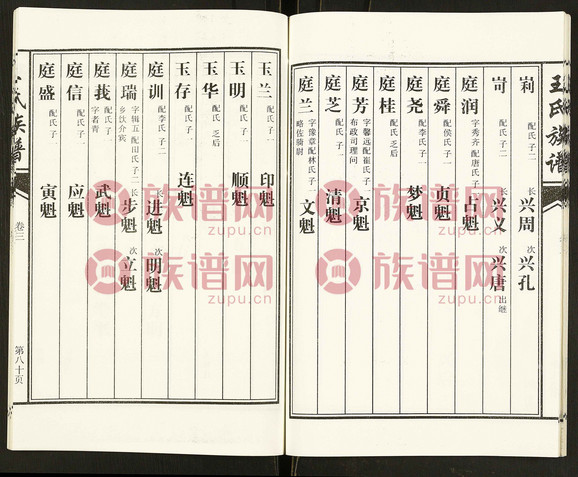 王氏族谱
配氏 子二 长兴周 次兴孔
岢 配氏 子二 长兴义 次兴唐 出继
庭润 字秀齐配唐氏子 占魁
庭舜 配侯氏子一 贞魁
庭尧 配李氏子一 梦魁
庭桂 配氏子
庭芳 字馨远配崔氏子一 布政司理问 京魁
庭芝 配氏 子一 清魁
庭兰 字豫章配林氏子一 略佐骑尉 文魁
玉兰 配氏 子一 印魁
玉明 配氏 子一 顺魁
玉华 配氏 乏后
玉存 配氏 子一 连魁
庭训 配李氏 子二 长进魁 次明魁
庭瑞 字辑五配田氏子二 乡饮介宾 长步魁 次立魁
庭莪 配氏子一 字者青 武魁
庭信 配氏 子一 应魁
庭盛 配氏 子一 寅魁
氏族谱
卷三
第八十页
族谱网
zupu.cn
族谱网
zupu.cn
族谱网
zupu.cn
族谱网
zupu.cn